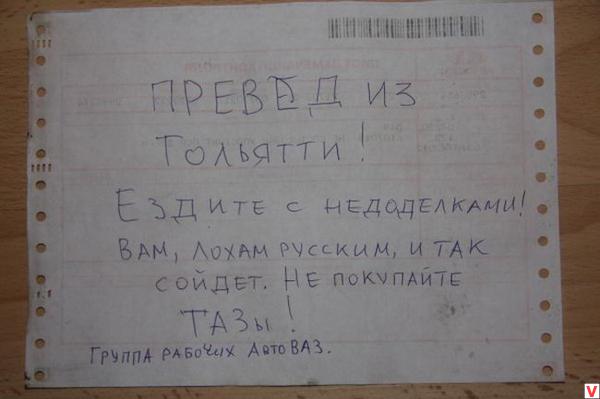 ПРЕВЕД ИЗ
ТОЛЬЯТТИ!
ЕЗДИТЕ С НЕДОДЕЛКАМИ!
ВАМ, ЛОХАМ РУССКИМ, И ТАК
СОЙДЕТ. НЕ ПОКУПАЙТЕ
ТАЗЫ!
ГРУППА РАБОЧИХ АВТОВАЗ.
V